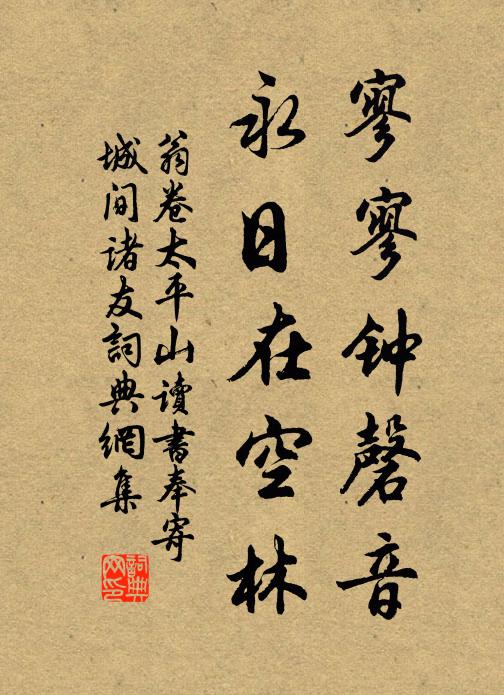 寥寥钟磬音
永日在空林
翁卷太平山讀書奉寄
城间诸友詞典網集
詞典网印